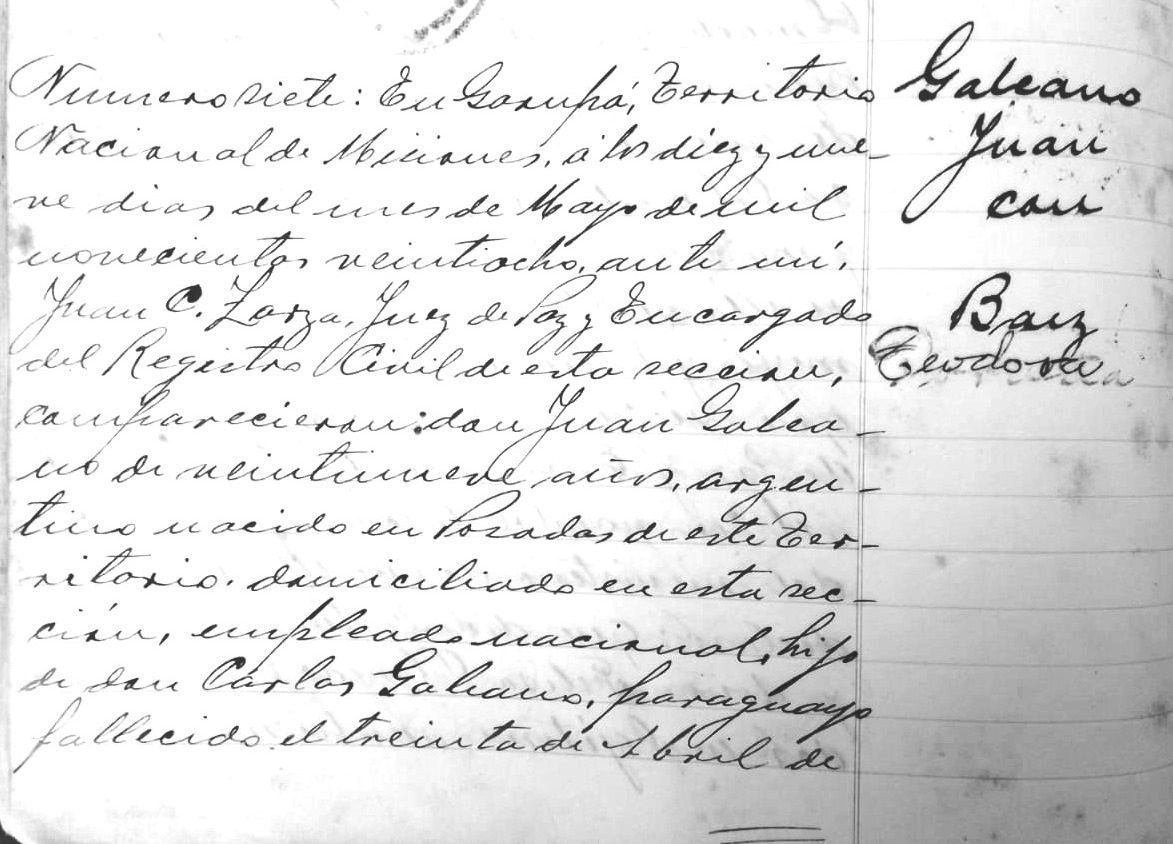 Numero siete: En Garupá, Territorio
Nacional de Misiones, á los diez y nue-
ve dias del mes de Mayo de mil
novecientos veintiocho, ante mí,
Juan C. Zarza, Juez de Paz y Encargado
del Registro Civil de esta seccion,
comparecieron: don Juan Galea-
no de veintinueve años, argen-
tino nacido en Posadas de este Ter-
ritorio, domiciliado en esta sec-
ción, empleado nacional, hijo
de don Carlos Galeano, paraguayo
fallecido el treinta de Abril de
Galeano
Juan
con
Baez
Teodora